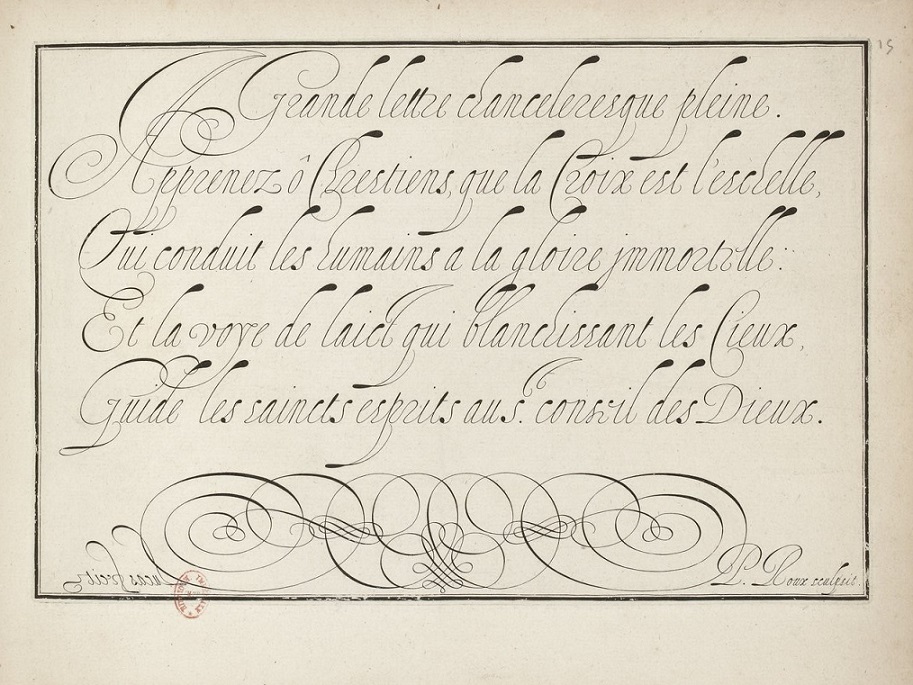 Grande lettre chanceleresque pleine.
Apprenez ô Chrestiens, que la Croix est l'eschelle,
Qui conduit les humains a la gloire jmmortelle:
Et la voye de laict qui blanchissant les Cieux,
Guide les saincts esprits au st. conseil des Dieux.
Lucas fecit
P. Roux sculpsit.
15